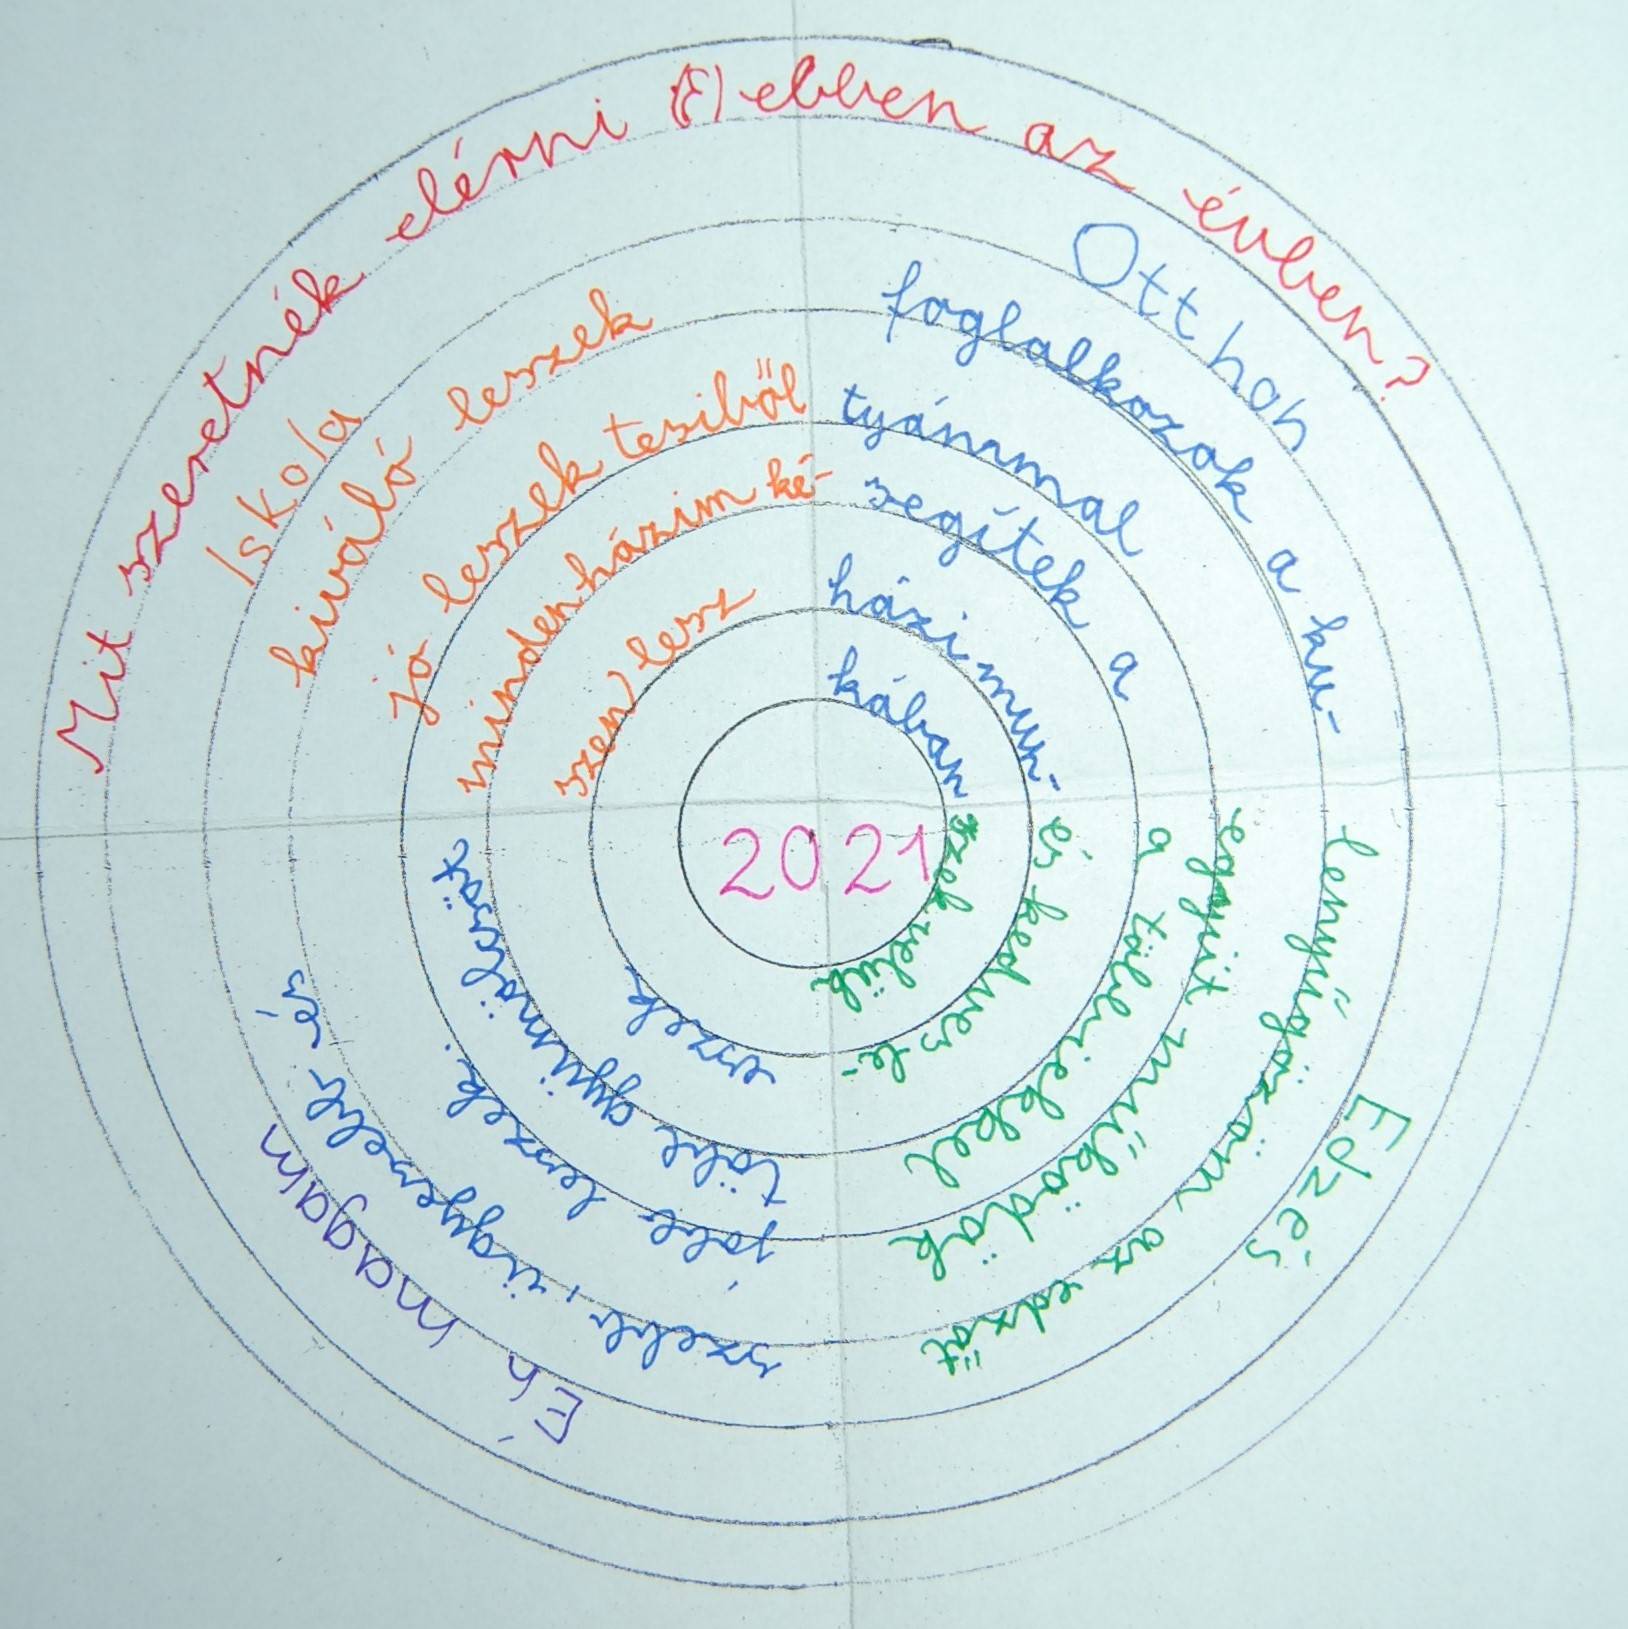 Mit szeretnék elérni (E) ebben az évben?
Iskola
kiváló leszek
jó leszek tesiből
minden házim ké-
szen lesz
Otthon
foglalkozok a ku-
tyámmal
segítek a
házi mun-
kában
Edzés
lenyűgözöm az edzőt
együt működök
a töbiekkel
és kedves le-
szek velük
Én magam
szebb, ügyesebb és
jobb leszek.
több gyümölcsöt
eszek
2021